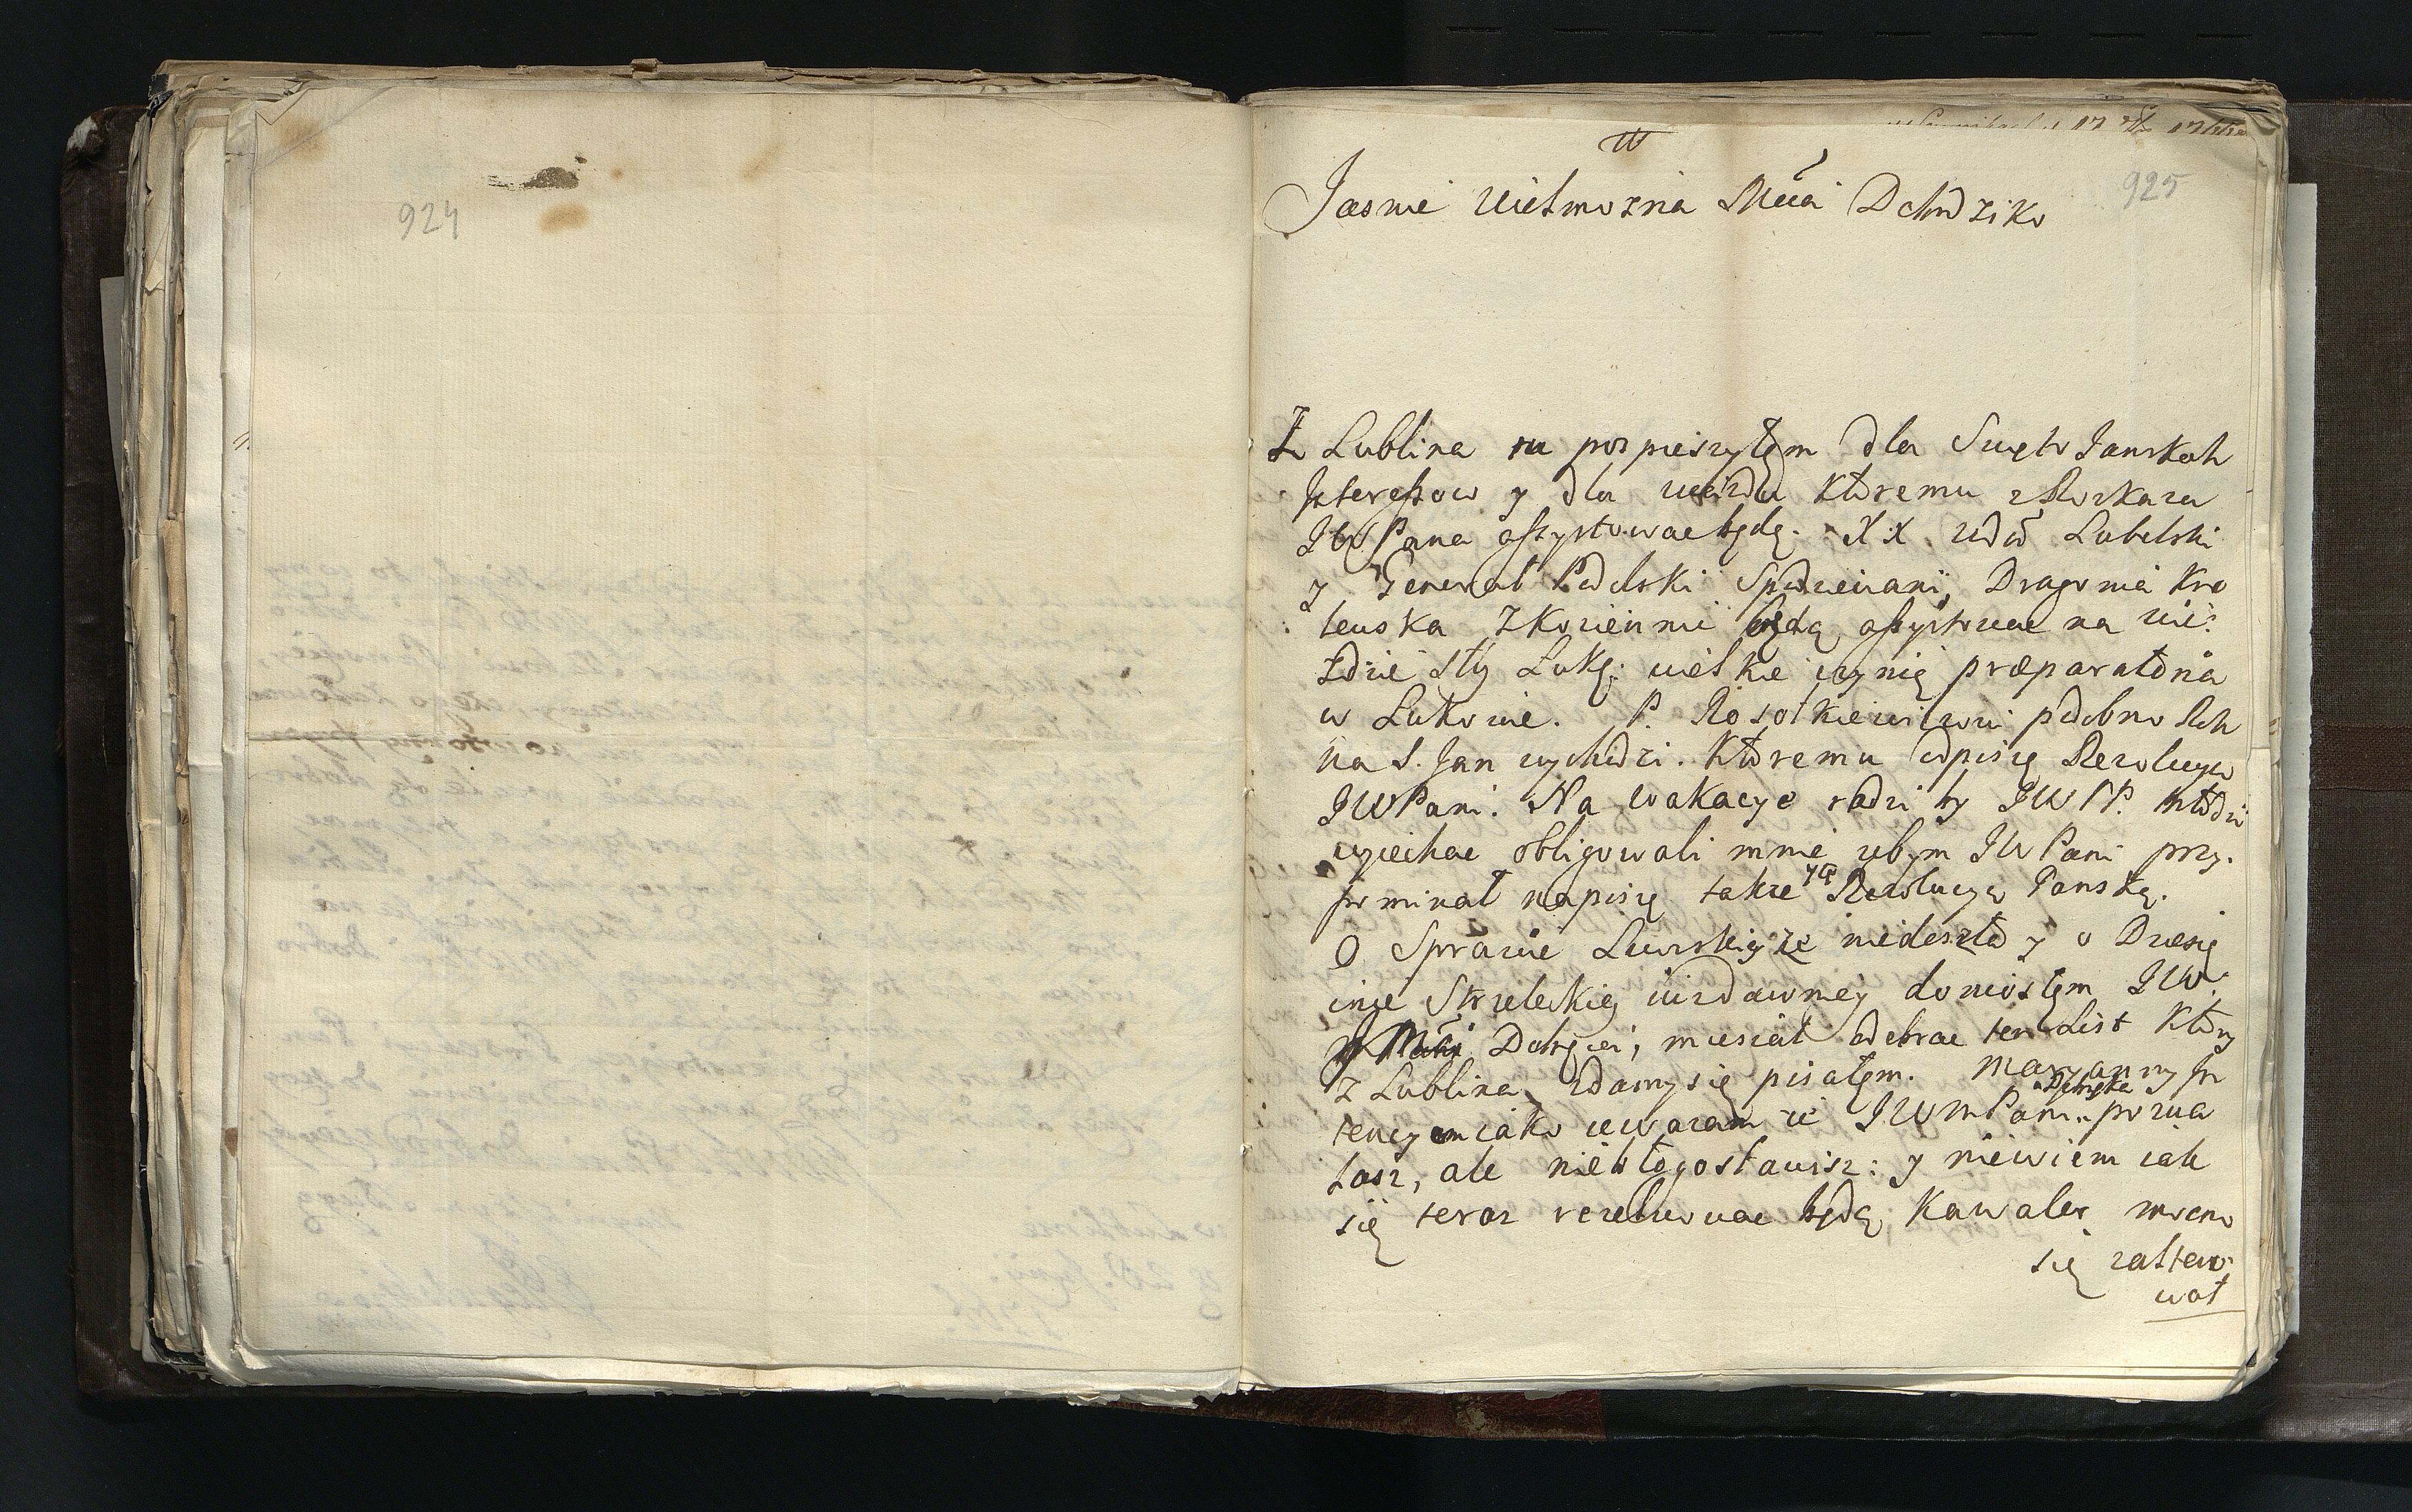 924
925
Jasnie Wielmozna Mcia Dobrodziko
Z Lublina tu pospieszyłęm dla Swęto Janskah
Jnteressow y dla wiazdu ktoremu z Rozkazu
JW Pana assystowac będę. XX. Wdw Lubelski
y Generał Podolski spodziewani, Dragonia Kro
lewska z konienmi będą assystowac na wie:
zdzie Sty Lukę: wielkie czynię præparatoria
w Łukowie. P. Rosołkiewiczowi podobno Rok
na S. Jan wychodzi. Ktoremu odpiszę Rezolucyą
JWPani. Na wakacye radzi by JWPP. młodzi
wyiechac obligowali mnie zebym JW Pani przy.
pominał napiszę takze Rezolucyą Panską.
O Sprawie Lwoskiey ze niedoszła y o Dziesię
cinie Strzeleckiey iuz dawniey doniosłęm JW.
Mci Dobrcei, musiał odebrac ten List ktory
z Lublina zdamysię pisałęm. Maryanny po
tencyom iako uwazam ze JWmPani Dobrzka pozwa
lasz, ale niebłogosławisz: y niewiem iak
się teraz rezolwowac będą, Kawaler mocno
się zaltero
wał